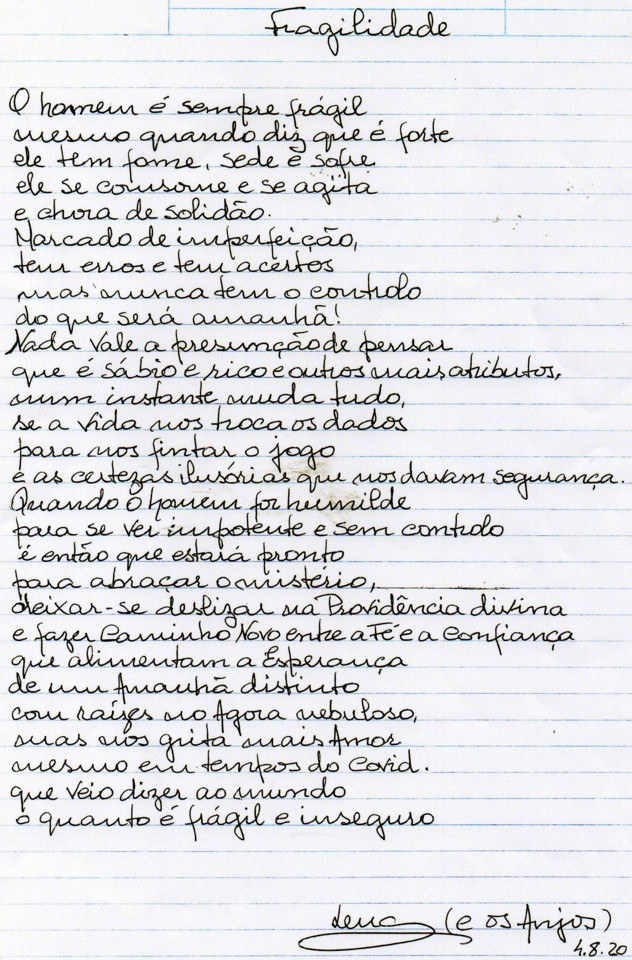 Fragilidade
O homem é sempre frágil
mesmo quando diz que é forte
ele tem fome, sede e sofre
ele se consome e se agita
e chora de solidão.
Marcado de imperfeição,
tem erros e tem acertos
mas nunca tem o controlo
do que será amanhã!
Nada vale a presunção de pensar
que é sábio e rico e outros mais atributos,
num instante muda tudo,
se a vida nos troca os dados
para nos fintar o jogo
e as certezas ilusórias que nos davam segurança.
Quando o homem for humilde
para se ver impotente e sem controlo
é então que estará pronto
para abraçar o mistério,
deixar-se deslizar na Providência divina
e fazer Caminho Novo entre a Fé e a Confiança
que alimentam a Esperança
de um Amanhã distinto
com raízes no Agora nebuloso,
mas nos grita mais Amor
mesmo em tempos do Covid.
que veio dizer ao mundo
o quanto é frágil e inseguro
Lena (e os Anjos)
4.8.20